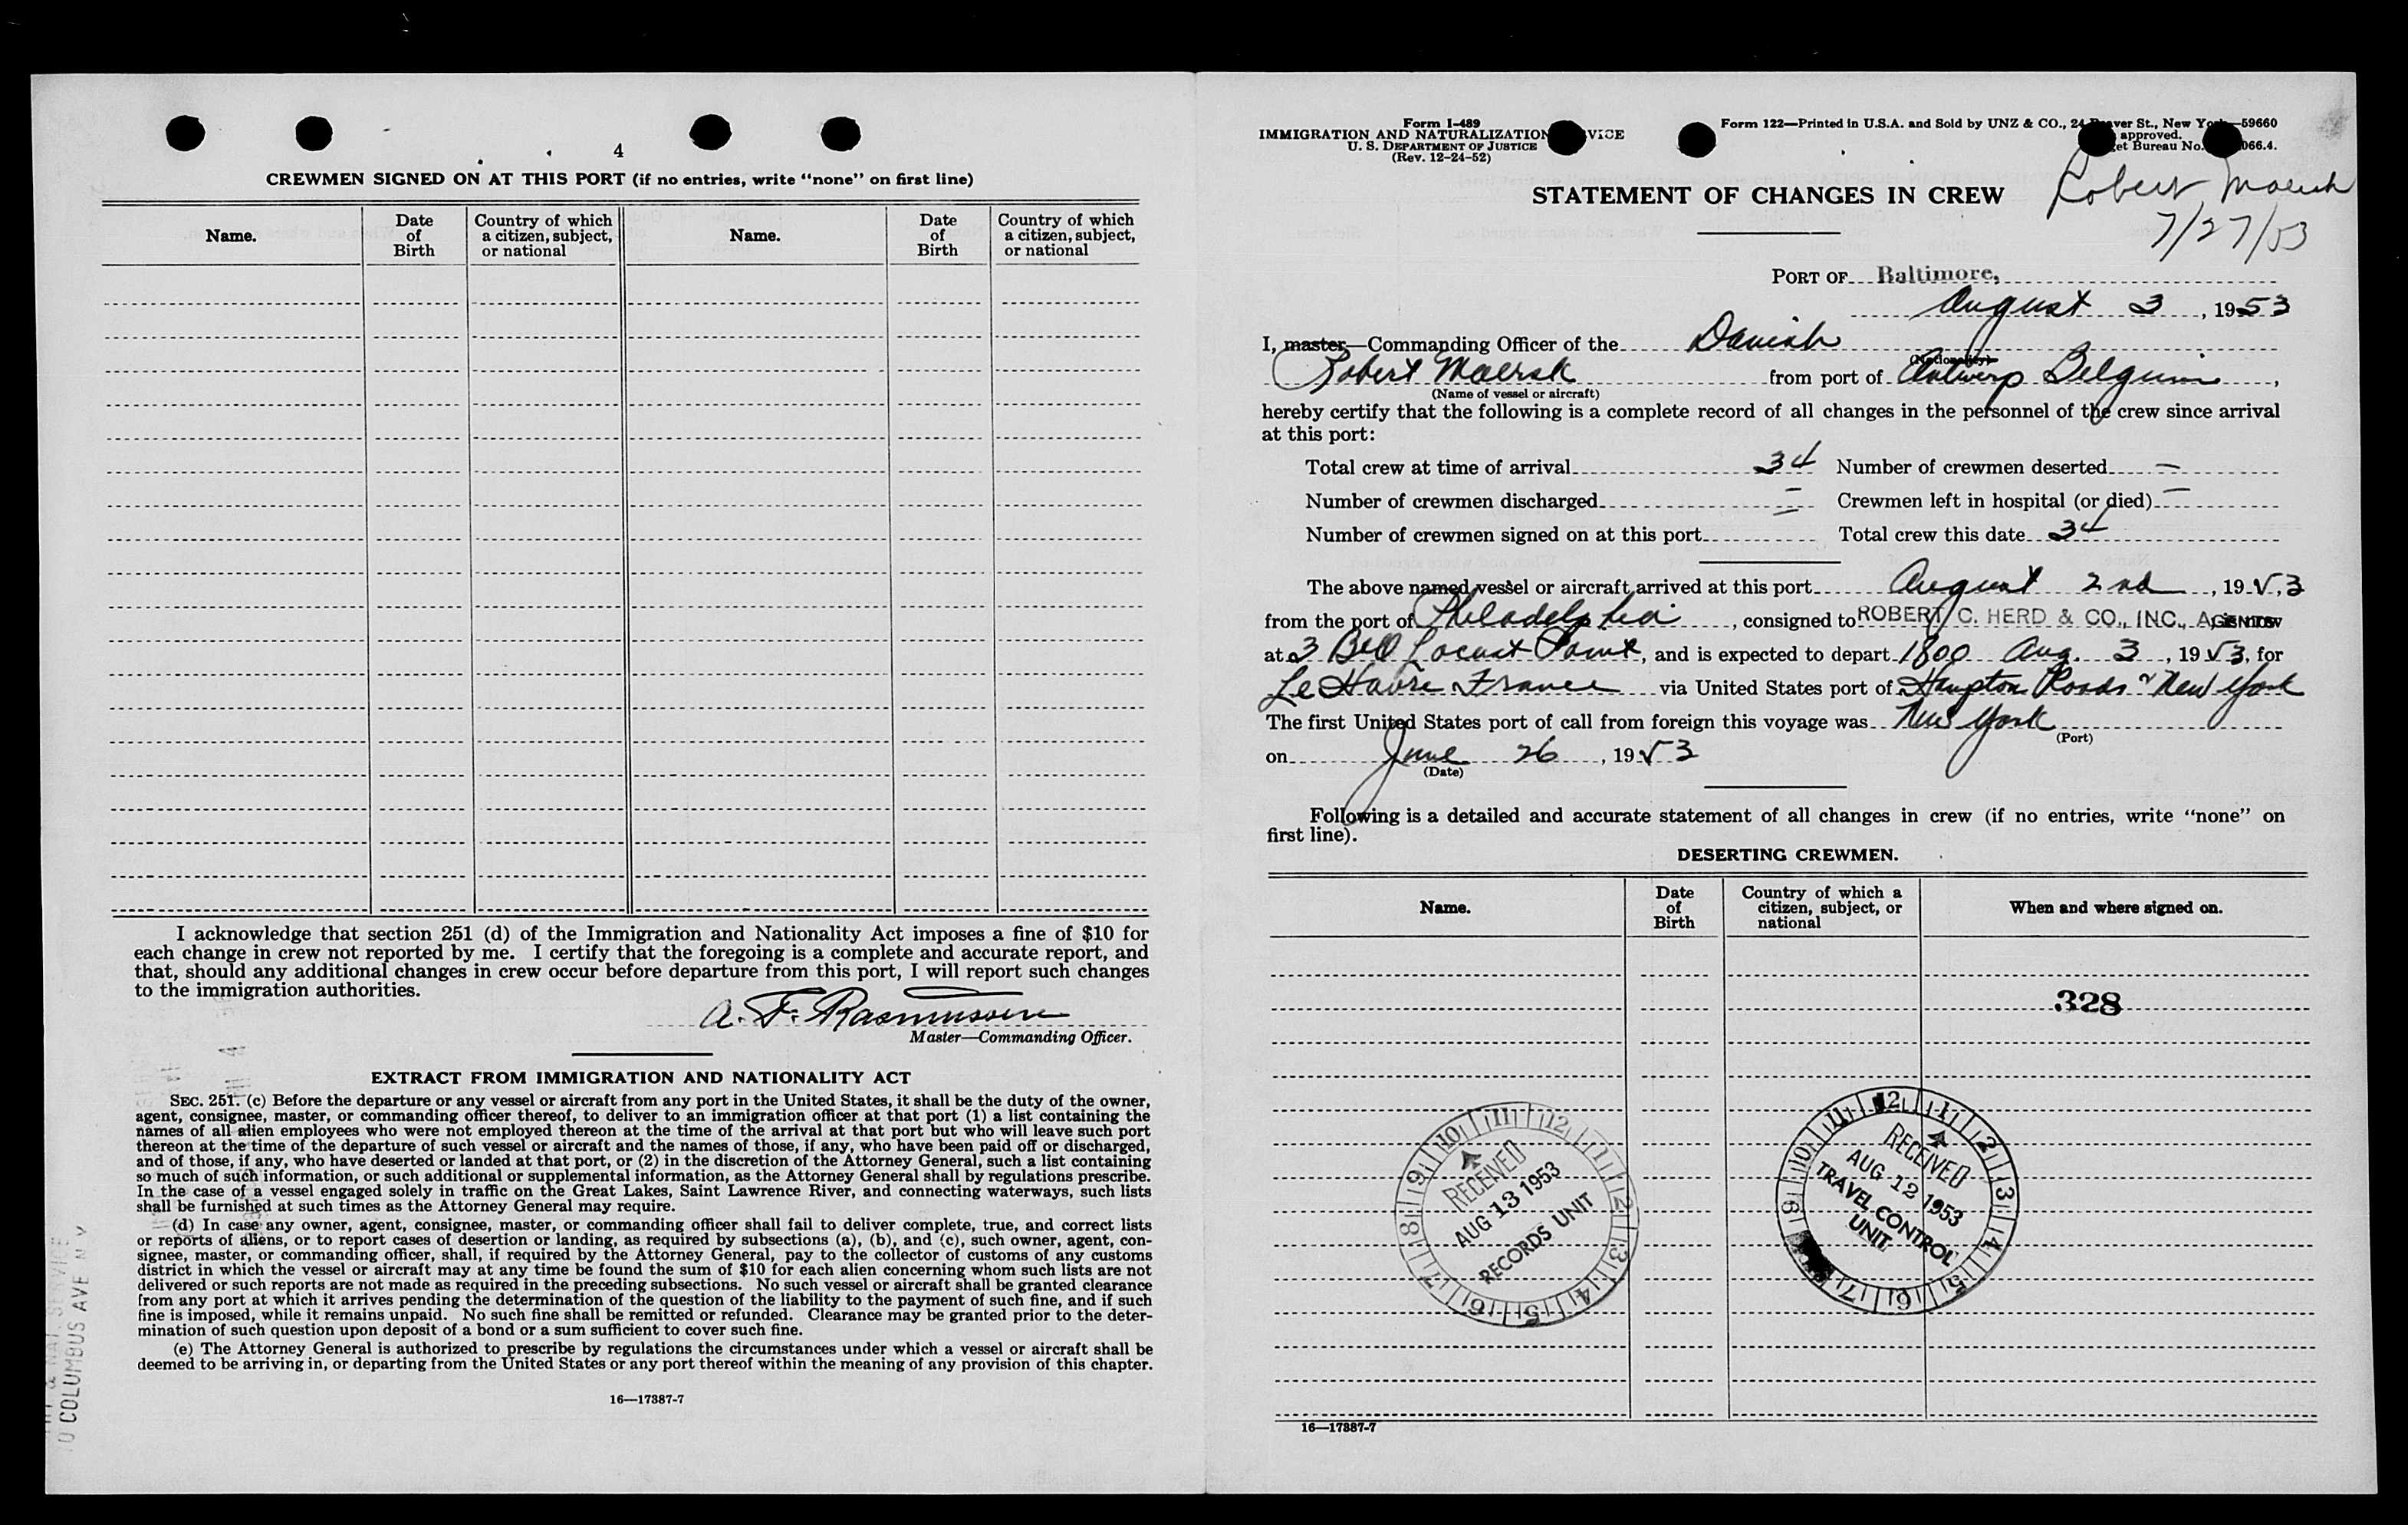 4
CREWMEN SIGNED ON AT THIS PORT (if no entries, write "none" on first line)
Name. Date of Birth Country of which a citizen, subject, or national Name. Date of Birth Country of which a citizen, subject, or national
I acknowledge that section 251 (d) of the Immigration and Nationality Act imposes a fine of $10 for
each change in crew not reported by me. I certify that the foregoing is a complete and accurate report, and
that, should any additional changes in crew occur before departure from this port, I will report such changes
to the immigration authorities.
A. F. Rasmussen
Master—Commanding Officer.
EXTRACT FROM IMMIGRATION AND NATIONALITY ACT
SEC. 251. (c) Before the departure or any vessel or aircraft from any port in the United States, it shall be the duty of the owner,
agent, consignee, master, or commanding officer thereof, to deliver to an immigration officer at that port (1) a list containing the
names of all alien employees who were not employed thereon at the time of the arrival at that port but who will leave such port
thereon at the time of the departure of such vessel or aircraft and the names of those, if any, who have been paid off or discharged,
and of those, if any, who have deserted or landed at that port, or (2) in the discretion of the Attorney General, such a list containing
so much of such information, or such additional or supplemental information, as the Attorney General shall by regulations prescribe.
In the case of a vessel engaged solely in traffic on the Great Lakes, Saint Lawrence River, and connecting waterways, such lists
shall be furnished at such times as the Attorney General may require.
(d) In case any owner, agent, consignee, master, or commanding officer shall fail to deliver complete, true, and correct lists
or reports of aliens, or to report cases of desertion or landing, as required by subsections (a), (b), and (c), such owner, agent, con-
signee, master, or commanding officer, shall, if required by the Attorney General, pay to the collector of customs of any customs
district in which the vessel or aircraft may at any time be found the sum of $10 for each alien concerning whom such lists are not
delivered or such reports are not made as required in the preceding subsections. No such vessel or aircraft shall be granted clearance
from any port at which it arrives pending the determination of the question of the liability to the payment of such fine, and if such
fine is imposed, while it remains unpaid. No such fine shall be remitted or refunded. Clearance may be granted prior to the deter-
mination of such question upon deposit of a bond or a sum sufficient to cover such fine.
(e) The Attorney General is authorized to prescribe by regulations the circumstances under which a vessel or aircraft shall be
deemed to be arriving in, or departing from the United States or any port thereof within the meaning of any provision of this chapter.
16—17387-7
COLUMBUS AVE N Y
Form I-489
IMMIGRATION AND NATURALIZATION VICE
U. S. DEPARTMENT OF JUSTICE
(Rev. 12-24-52)
Form 122—Printed in U.S.A. and Sold by UNZ & CO., 24 aver St., New Yo —59660
approved.
et Bureau No. 066.4.
Robert Maersk
7/27/53
STATEMENT OF CHANGES IN CREW
PORT OF Baltimore,
August 3, 1953
I, master—Commanding Officer of the Danish
(Nationality)
Robert Maersk from port of Antwerp Belguim,
(Name of vessel or aircraft)
hereby certify that the following is a complete record of all changes in the personnel of the crew since arrival
at this port:
Total crew at time of arrival 34 Number of crewmen deserted —
Number of crewmen discharged — Crewmen left in hospital (or died) —
Number of crewmen signed on at this port — Total crew this date 34
The above named vessel or aircraft arrived at this port August 2nd, 1953
from the port of Philadelphia, consigned to ROBERT C. HERD & CO., INC., AGENTS, is now
at 3 B&O Locust Point, and is expected to depart 1800 Aug. 3, 1953, for
Le Havre France via United States port of Hampton Roads & New York
The first United States port of call from foreign this voyage was New York
(Port)
on June 26, 1953
(Date)
Following is a detailed and accurate statement of all changes in crew (if no entries, write "none" on
first line).
DESERTING CREWMEN.
Name. Date of Birth Country of which a citizen, subject, or national When and where signed on.
328
RECEIVED
AUG 13 1953
RECORDS UNIT
RECEIVED
AUG 12 1953
TRAVEL CONTROL
UNIT
16—17387-7